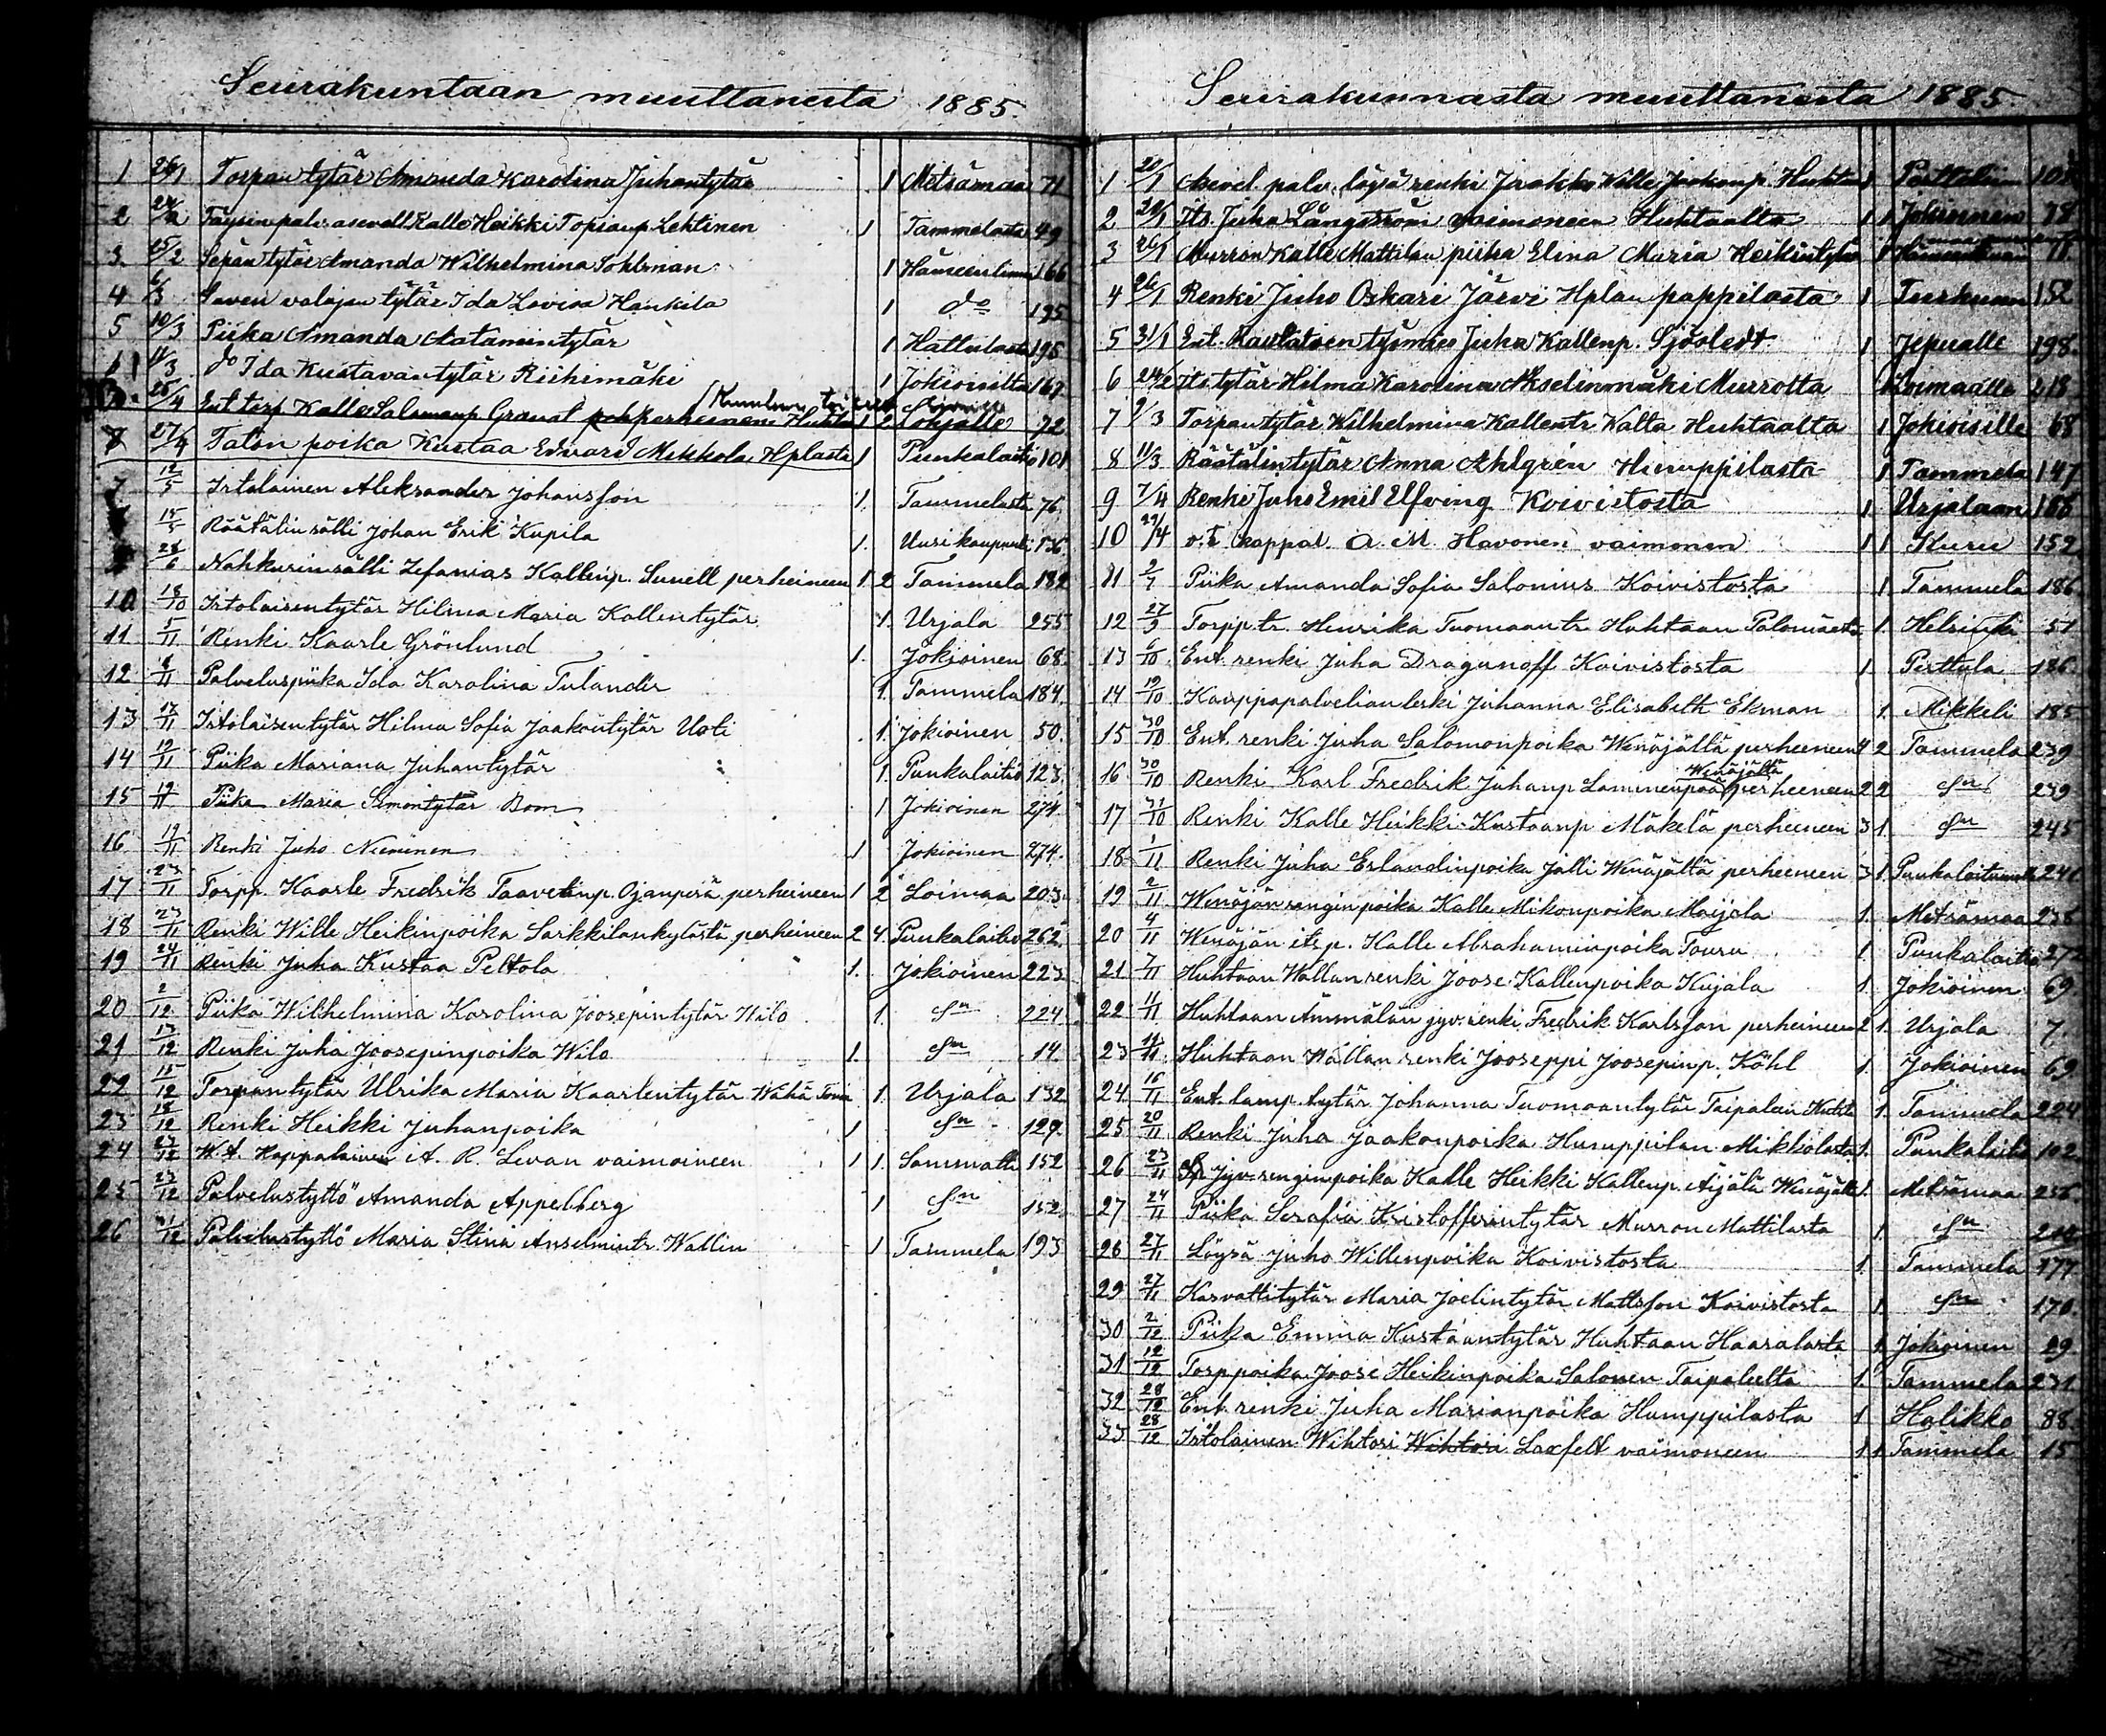 Seurakuntaan muuttaneita 1885.
1 26/1 Torpan tytär Amanda Karolina Juhantytär 1 Metsämaa 71
2 Täysin palv. asevell Kalle Heikki Topiaup Lehtinen 1 Tammelasta 49
3 15/2 Sepän tytär Amanda Wilhelmina Sohlman 1 Hämeenlinna 166
4 6/3 Saven valajan tytär Ida Lovisa Hankila 1 do 195
5 10/3 Piika Amanda Aatamintytär 1 Hattulasta 195
11/3 do Ida Kustavantytär Riihimäki 1 Jokioisilta 167
25/4 Ent torp Kalle Salomonp Granat perheineen Huhta 1 2 Lohjalle 72
27/4 Talon poika Kustaa Edvard Mikkola Hplasta 1 Punkalaitio 101
7 12/5 Irtolainen Aleksander Johansson 1. Tammelasta 76
15/5 Räätälin sälli Johan Erik Kupila 1. Uusikaupunki 136
28/6 Nahkurin sälli Zefanias Kallenp. Sunell perheineen 1 2 Tammela 182
10 18/10 Irtolaisentytär Hilma Maria Kallentytär 1. Urjala 255
11 5/11 Renki Kaarle Grönlund 1. Jokioinen 68.
12 8/11 Palveluspiika Ida Karolina Tulander 1. Tammela 184
13 12/11 Irtolaisentytär Hilma Sofia Jaakontytär Uoti 1. Jokioinen 50.
14 19/11 Piika Mariana Juhantytär 1. Punkalaitio 123.
15 19/11 Piika Maria Simontytär Bom 1 Jokioinen 274.
16 19/11 Renki Juho Nieminen 1 Jokioinen 274.
17 23/11 Torpp. Kaarle Fredrik Taavetinp. Ojanperä perheineen 1 2 Loimaa 203.
18 23/11 Renki Wille Heikinpoika Sarkkilankylästä perheineen 2 4. Punkalaitio 262
19 24/11 Renki Juha Kustaa Peltola 1. Jokioinen 223
20 2/12 Piika Wilhelmina Karolina Joosepintytär Wilo 1. Sn 224
21 13/12 Renki Juha Joosepinpoika Wilo 1. Sn 14.
22 15/12 Torpantytär Ulrika Maria Kaarlentytär Wähä 1. Urjala 132
23 18/12 Renki Heikki Juhanpoika 1 Sn 129.
24 23/12 Kappalainen A. R. Levan vaimoineen 1 1. Sammatti 152
25 23/12 Palvelustyttö Amanda Appelberg 1 Sn 152
26 31/12 Palvelustyttö Maria Stina Anselmintr. Wallin 1 Tammela 193
Seurakunnasta muuttaneita 1885.
1 20/1 Asevel. palv. löysä renki Jaakko Wille Jaakonp. Huhta 1 Perttelin
2 20/1 Its. Juha Långström vaimoneen Huhtaalta 1 1 Jokioinen 78
3 26/1 Murron Kalle Mattilan piika Elina Maria Heikintytär 1
4 26/1 Renki Juho Oskari Järvi Hplan pappilasta 1 Turkuun 152
5 31/1 Ent. Rautatien työmies Juha Kallenp. Sjöstedt 1 Jepualle 198.
6 24/2 Its tytär Hilma Karolina Akselinmäki Murrolta Loimaalla 218
7 9/3 Torpantytär Wilhelmina Kallentr Walta Huhtaalta 1 Jokioisille 68
8 11/3 Räätälintytär Anna Ahlgren Humppilasta 1 Tammela 147
9 7/4 Renki Juho Emil Elfving Koivistosta 1 Urjalaan 166
10 29/4 v.t. kappal. A. M. Havonen vaimonen 1 1 Kuru 152
11 2/7 Piika Amanda Sofia Salonius Koivistosta 1 Tammela 186
12 27/9 Torpp.tr. Henrika Tuomaantr Huhtaan Palomäeltä 1. Helsinki 51
13 6/10 Ent. renki Juha Dragunoff Koivistosta 1 Perttula 186.
14 19/10 Kauppapalvelian leski Johanna Elisabeth Ekman 1. Mikkeli 185
15 30/10 Ent. renki Juha Salomonpoika Wenäjältä perheeneen 4 2 Tammela 239
16 30/10 Renki Karl Fredrik Juhanp Lammenpää Wenäjältä perheeneen 2 2 Sn 239
17 31/10 Renki Kalle Heikki Kustaanp Mäkelä perheeneen 3 1. Sn 245
18 1/11 Renki Juha Erlandinpoika Jalli Wenäjältä perheeneen 3 1. Punkalaitumelle 241
19 2/11 Wenäjän rengin poika Kalle Mikonpoika Maijala 1. Metsämaa 238
20 4/11 Wenäjän its p. Kalle Abrahaminpoika Touru 1. Punkalaitio 272
21 7/11 Huhtaan Wallan renki Joose Kallenpoika Kujala 1. Jokioinen 69
22 11/11 Huhtaan Ämmälän jyv. renki Fredrik Karlsson perheineen 2 1. Urjala 7
23 14/11 Huhtaan Wallan renki Jooseppi Joosepinp. Köhl 1. Jokioinen 69
24. 16/11 Ent. lamp. tytär Johanna Tuomaantytär Taipaleen Huhta 1. Tammela 224
25 20/11 Renki Juha Jaakonpoika Humppilan Mikkolasta 1. Punkalaitio 102
26 23/11 Jyv. renginpoika Kalle Heikki Kallenp. Äijälä Wenäjältä 1. Metsämaa 236
27 24/11 Piika Serafia Kristofferintytär Murron Mattilasta 1. Sn 210
28 27/11 Löysä Juho Willenpoika Koivistosta 1. Tammela 177
29 27/11 Kasvattitytär Maria Joelintytär Mattsson Koivistosta 1. Sn 170.
30 2/12 Piika Emma Kustaantytär Huhtaan Haaralasta 1. Jokioinen 29
31 12/12 Torppoika Joose Heikinpoika Salonen Taipaleelta 1. Tammela 231
32 28/12 Ent. renki Juha Marianpoika Humppilasta 1 Halikko 88.
33 28/12 Irtolainen Wihtori Wihtori Laxfelt vaimoneen 1 1 Tammela 15